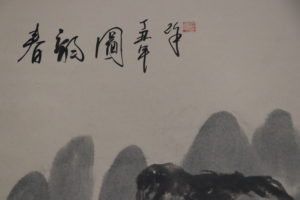 春韵圖
丁丑年